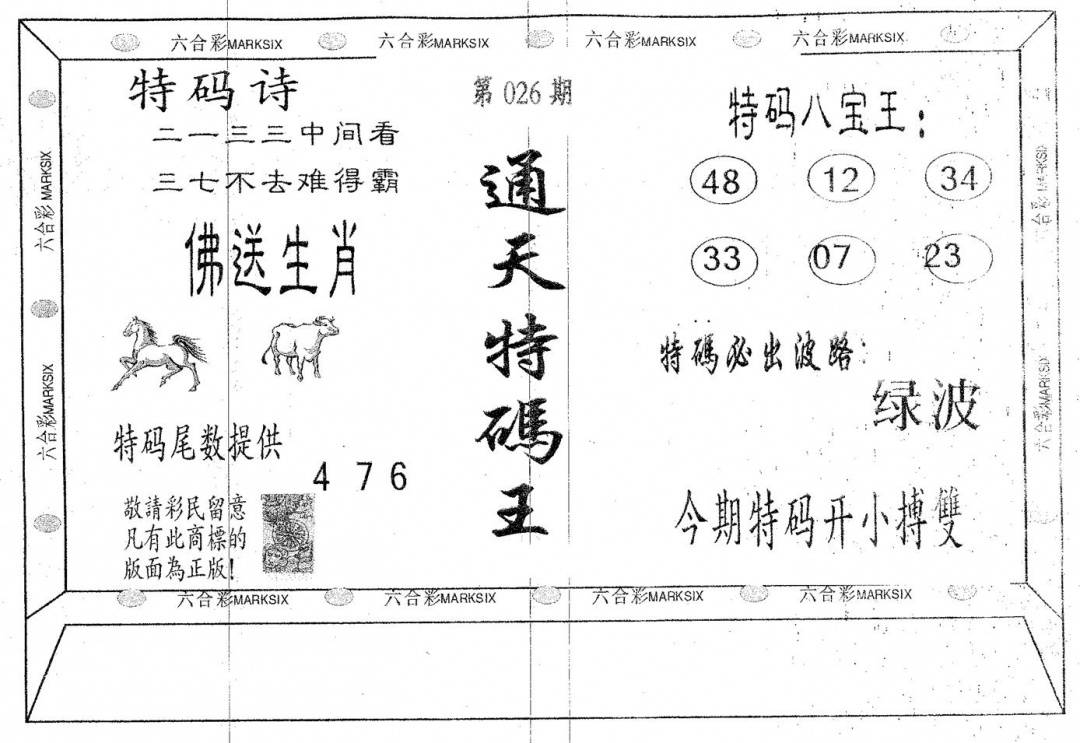 六合彩MARKSIX 六合彩MARKSIX 六合彩MARKSIX 六合彩MARKSIX
特码诗
二一三三中间看
三七不去难得霸
佛送生肖
特码尾数提供
4 7 6
敬請彩民留意
凡有此商標的
版面為正版!
第026期
通天特碼王
特码八宝王:
48 12 34
33 07 23
特碼必出波路:
绿波
今期特码开小搏雙
六合彩MARKSIX
六合彩MARKSIX
六合彩MARKSIX
六合彩MARKSIX
六合彩MARKSIX 六合彩MARKSIX 六合彩MARKSIX 六合彩MARKSIX